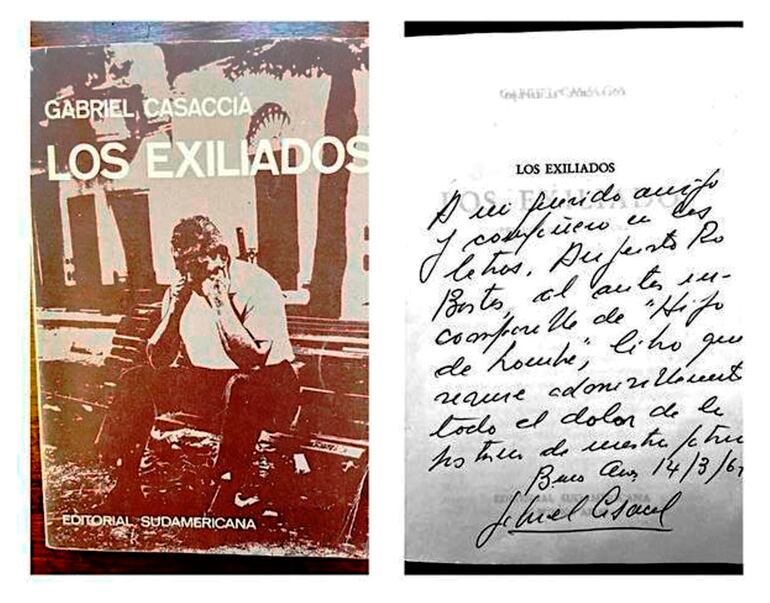 GABRIEL CASACCIA
LOS EXILIADOS
EDITORIAL SUDAMERICANA
LOS EXILIADOS
A mi querido amigo
y compañero en las
letras, Augusto Ro
Bastos, al autor in-
comparable de "Hijo
de hombre", libro que
resume admirablemente
todo el dolor de la
historia de nuestra patria
Buenos Aires 14/3/67
Gabriel Casaccia